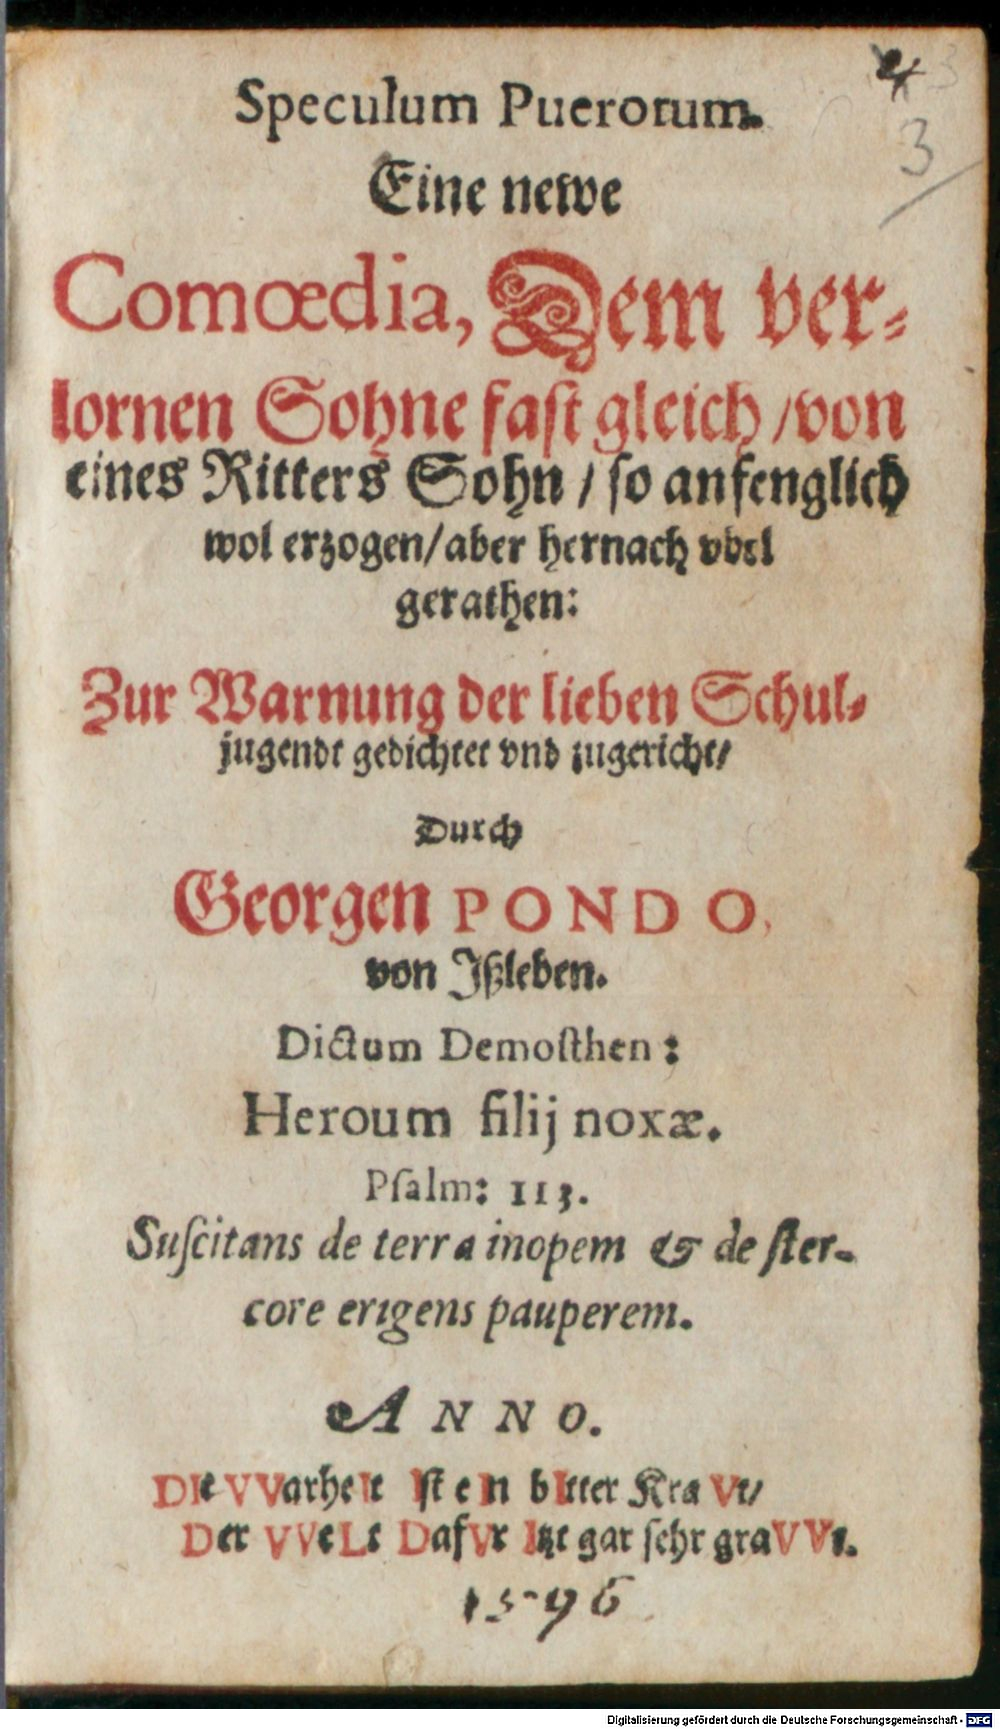 3
Speculum Puerorum.
Eine newe
Comœdia, Dem ver-
lornen Sohne fast gleich / von
eines Ritters Sohn / so anfenglich
wol erzogen / aber hernach vbel
gerathen:
Zur Warnung der lieben Schul-
jugendt gedichtet vnd zugericht /
Durch
Georgen PONDO,
von Jßleben.
Dictum Demosthen:
Heroum filij noxæ.
Psalm: 113.
Suscitans de terra inopem & de ster-
core erigens pauperem.
ANNO.
DIe VVarheIt Ist eIn bItter KraVt /
Der VVeLt DafVr Itzt gar sehr graVVt.
1596
Digitalisierung gefördert durch die Deutsche Forschungsgemeinschaft - DFG